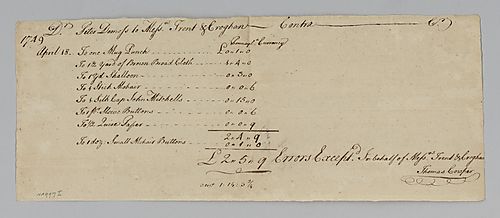 1749 Dr. Peter Demoss to Messrs. Trent & Croghan Contra Cr.
Pennsyl. Currency
April 18. To one Mug Punch £ 0 " 1 " 0
To 1¾ Yard of Brown Broad Cloth 1 " 4 " 0
To 1 yd Shalloon 0 " 3 " 0
To 1 Stick Mohair 0 " 0 " 6
To 1 Silk Cap John Mitchells 0 " 15 " 0
Buttons 0 " 0 " 6
To ½ Quire Paper 0 " 0 " 9
2 " 4 " 9
To 1 doz. Small Mohair Buttons 0 " 1 " 0
£ 2 " 5 " 9 Errors Excepd. In behalf of Messrs. Trent & Croghan
Thomas